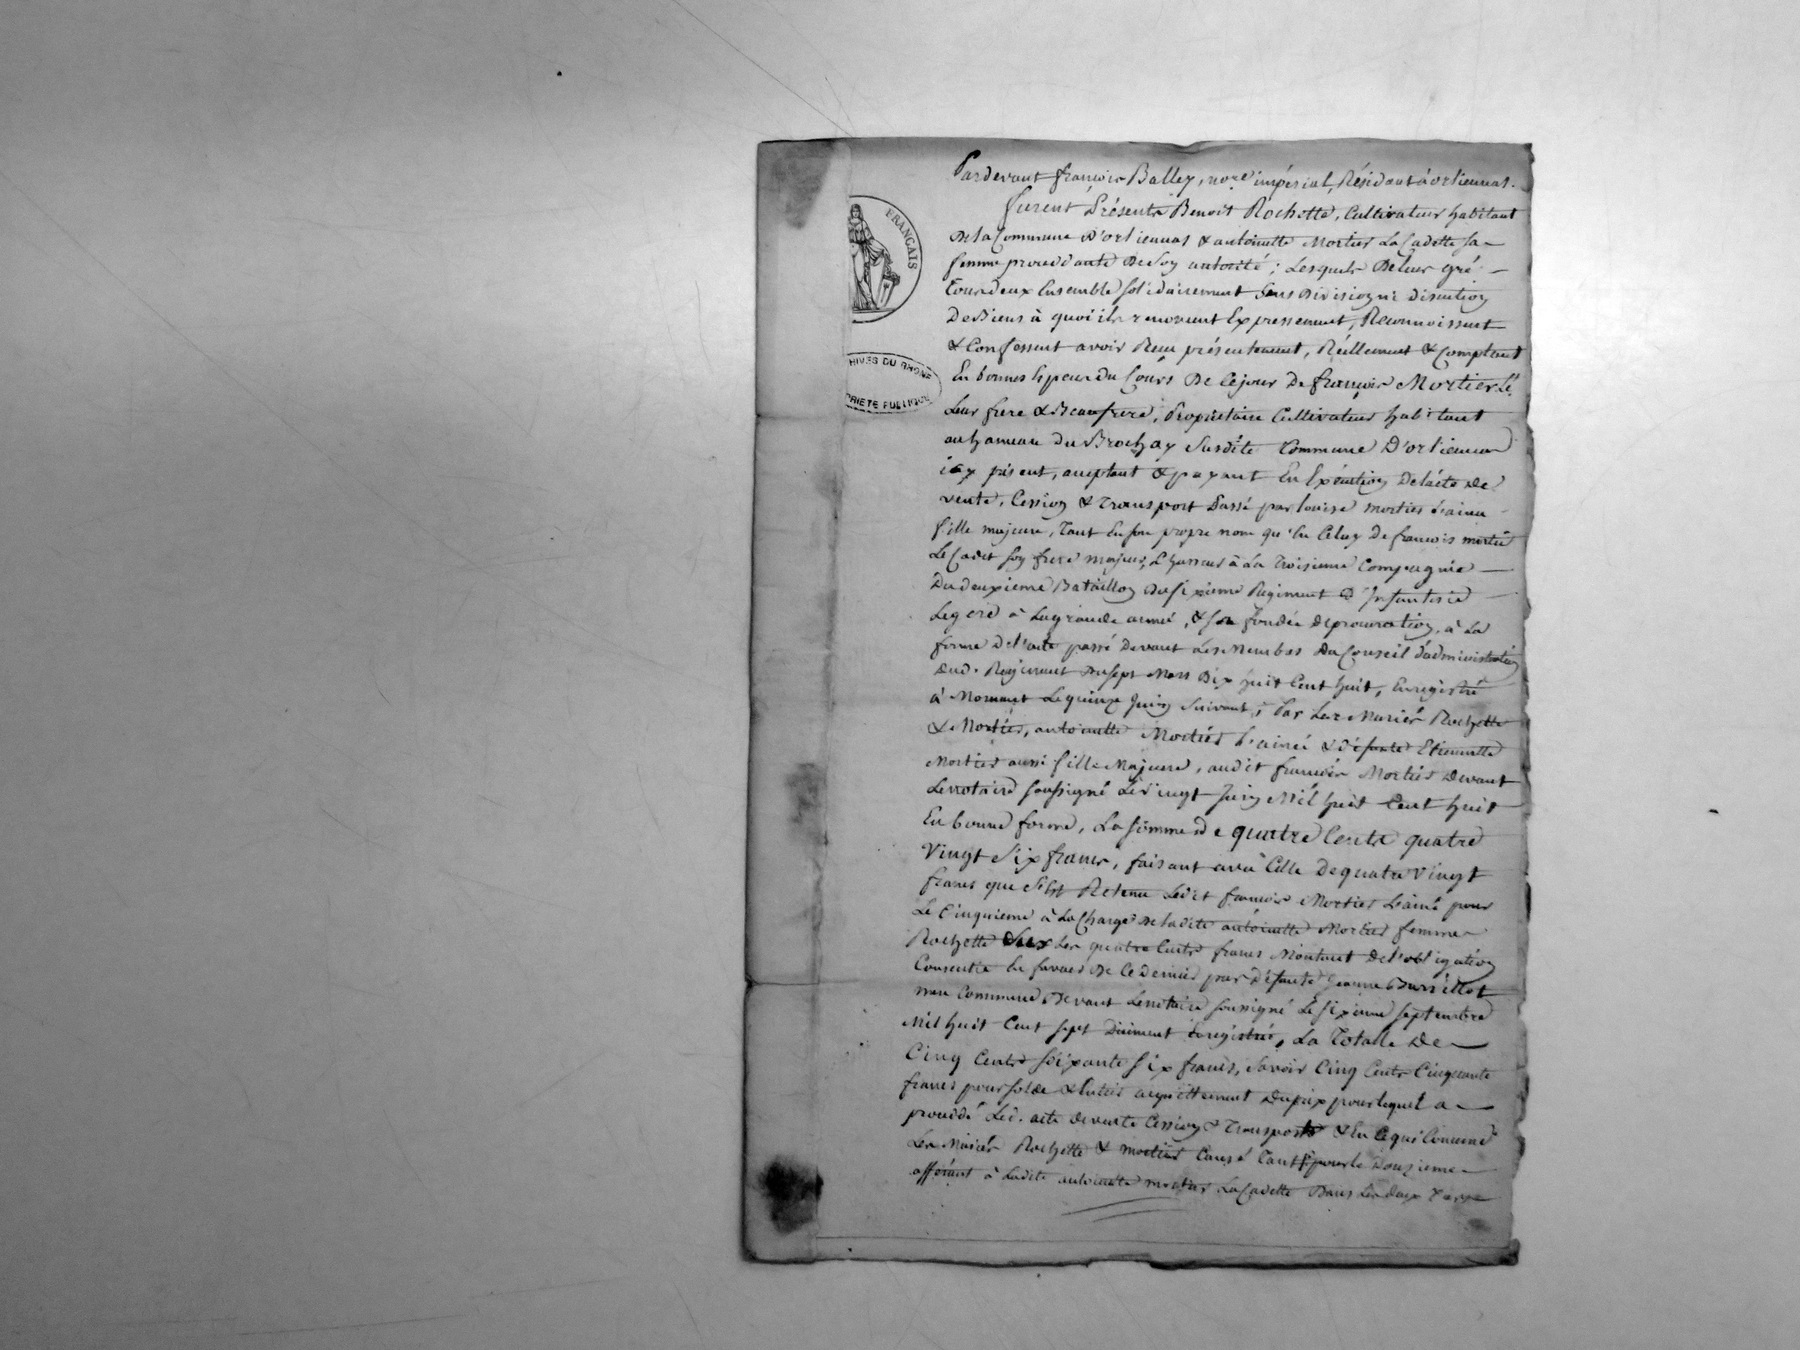 FRANÇAIS
HIVES DU RHÔNE
PRIETE PUBLIQUE
Pardevant françois Balley, nore impérial, Résidant à orliennas.
furent Présents Benoit Rochette, Cultivateur habitant
De la Commune D'orliennas & antoinette Mortier La Cadette sa
femme procédante De Son autorité; Lesquels De leur gré
Tous deux Ensemble solidairement sans Division ni discution
De Biens à quoi ils renoncent Expressement, Reconnoissent
& Confessent avoir Reçu présentement, Réellement & Comptant
En bonnes Espèces du Cours De Ce jour De françois Mortier L'é
Leur frere & Beaufrere, Propriétaire Cultivateur habitant
au hameau du Brochay Susdite Commune D'orliennas
icy présent, acceptant & payant En Exécution De l'acte de
vente, Cession & Transport Passé par louise mortier L'ainée
fille majeure, Tant En son propre nom qu'En Celuy De francois mortier
Le Cadet son frere majeur, Chasseur à La Troisieme Compagnie
Du deuxieme Bataillon du sixieme Regiment D'Infanterie
Legere à La grande armée, & son fondée de procuration, à La
forme De l'acte passé Devant Les Membres Du Conseil d'administration
Dud. Regiment Du sept Mars Dix huit Cent huit, Enregistré
à Mornant Le quinze Juin Suivant; Par Les Mariés Rochette
& Mortier, antoinette Mortier L'ainée & défunte Etiennette
Mortier aussi fille Majeure, audit françois Mortier Devant
Le notaire soussigné Le vingt Juin Mil huit Cent huit
En bonne forme, La somme de quatre Cents quatre
Vingt Six francs, faisant avec Celle De quatre Vingt
francs que S'est Retenu Ledit françois Mortier L'ainé pour
Le Cinquieme à La Charge De Ladite antoinette Mortier femme
Rochette Sur Les quatre Cents francs Montant De l'obligation
Consentie En faveur De Ce Dernier par Défunte Jeanne
mere Commune Devant Le notaire soussigné Le six septembre
Mil huit Cent sept Duement Enregistrée, La Totale De
Cinq Cents soixante Six francs, Savoir Cinq Cents Cinquante
francs pour solde & Entier acquittement Du prix pour lequel a
procédé Led. acte de vente Cession & Transport & En Ce qui Concerne
Les Mariés Rochette & mortier Causé Tant pour le Douzieme
afférant à Ladite antoinette mortier La Cadette Dans Les deux Tiers